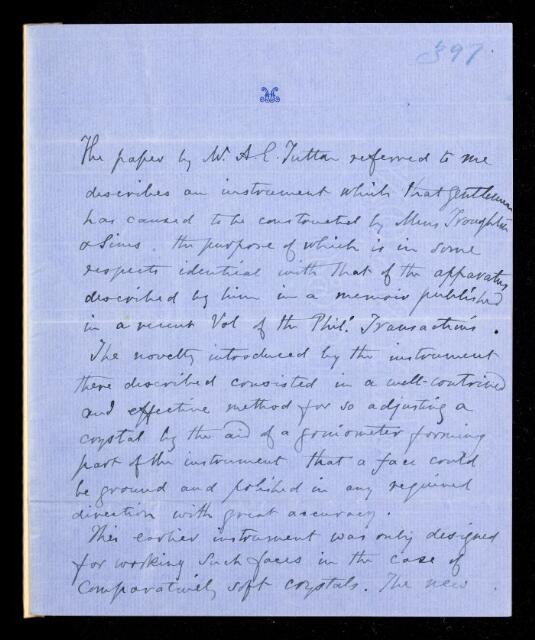 397.
The paper by Mr. A. E. Tutton referred to me
describes an instrument which that gentleman
has caused to be constructed by Messrs Troughton
& Simms. the purpose of which is in some
respects identical with that of the apparatus
described by him in a memoir published
in a recent Vol of the Phil. Transactions.
The novelty introduced by the instrument
there described consisted in a well-contrived
and effective method for so adjusting a
crystal by the aid of a goniometer forming
part of the instrument that a face could
be ground and polished in any required
direction with great accuracy.
This earlier instrument was only designed
for working such faces in the case of
comparatively soft crystals. The new